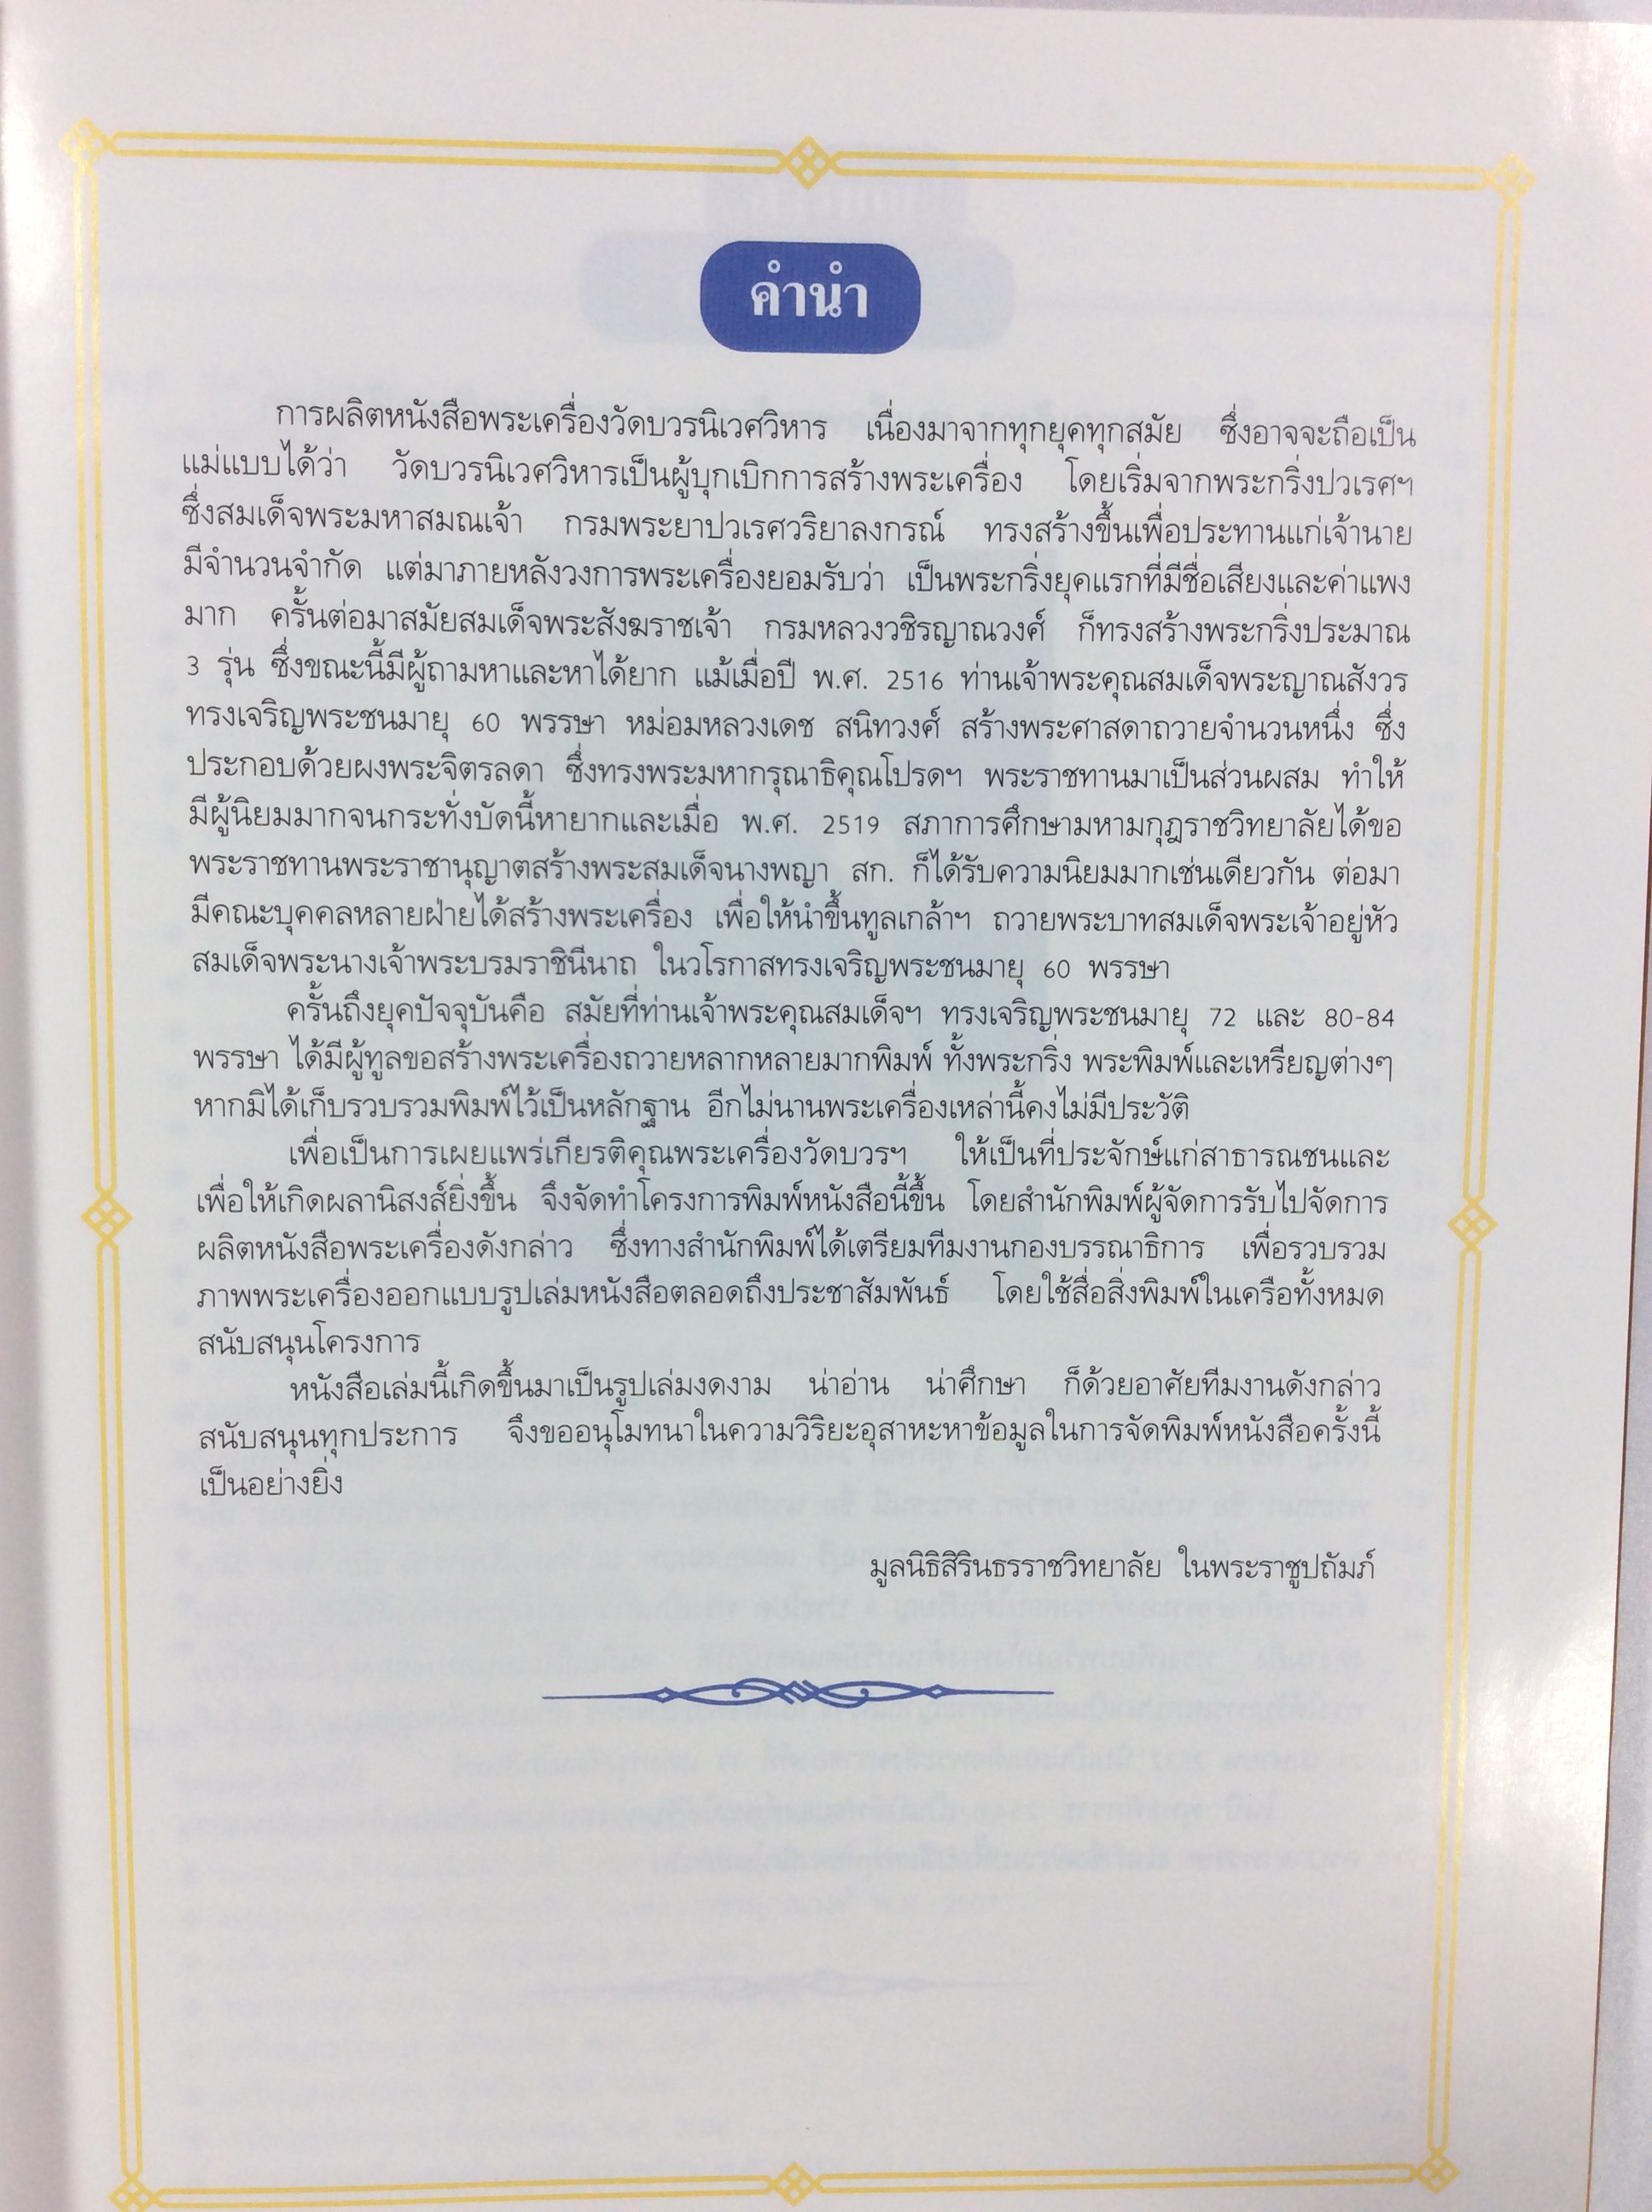 คำนำ
การผลิตหนังสือพระเครื่องวัดบวรนิเวศวิหาร เนื่องมาจากทุกยุคทุกสมัย ซึ่งอาจจะถือเป็น
แม่แบบได้ว่า วัดบวรนิเวศวิหารเป็นผู้บุกเบิกการสร้างพระเครื่อง โดยเริ่มจากพระกริ่งปวเรศฯ
ซึ่งสมเด็จพระมหาสมณเจ้า กรมพระยาปวเรศวริยาลงกรณ์ ทรงสร้างขึ้นเพื่อประทานแก่เจ้านาย
มีจำนวนจำกัด แต่มาภายหลังวงการพระเครื่องยอมรับว่า เป็นพระกริ่งยุคแรกที่มีชื่อเสียงและค่าแพง
มาก ครั้นต่อมาสมัยสมเด็จพระสังฆราชเจ้า กรมหลวงวชิรญาณวงศ์ ก็ทรงสร้างพระกริ่งประมาณ
3 รุ่น ซึ่งขณะนี้มีผู้ถามหาและหาได้ยาก แม้เมื่อปี พ.ศ. 2516 ท่านเจ้าพระคุณสมเด็จพระญาณสังวร
ทรงเจริญพระชนมายุ 60 พรรษา หม่อมหลวงเดช สนิทวงศ์ สร้างพระศาสดาถวายจำนวนหนึ่ง ซึ่ง
ประกอบด้วยผงพระจิตรลดา ซึ่งทรงพระมหากรุณาธิคุณโปรดฯ พระราชทานมาเป็นส่วนผสม ทำให้
มีผู้นิยมมากจนกระทั่งบัดนี้หายากและเมื่อ พ.ศ. 2519 สภาการศึกษามหามกุฎราชวิทยาลัยได้ขอ
พระราชทานพระราชานุญาตสร้างพระสมเด็จนางพญา สก. ก็ได้รับความนิยมมากเช่นเดียวกัน ต่อมา
มีคณะบุคคลหลายฝ่ายได้สร้างพระเครื่อง เพื่อให้นำขึ้นทูลเกล้าฯ ถวายพระบาทสมเด็จพระเจ้าอยู่หัว
สมเด็จพระนางเจ้าพระบรมราชินีนาถ ในวโรกาสทรงเจริญพระชนมายุ 60 พรรษา
ครั้นถึงยุคปัจจุบันคือ สมัยที่ท่านเจ้าพระคุณสมเด็จฯ ทรงเจริญพระชนมายุ 72 และ 80-84
พรรษา ได้มีผู้ทูลขอสร้างพระเครื่องถวายหลากหลายมากพิมพ์ ทั้งพระกริ่ง พระพิมพ์และเหรียญต่างๆ
หากมิได้เก็บรวบรวมพิมพ์ไว้เป็นหลักฐาน อีกไม่นานพระเครื่องเหล่านี้คงไม่มีประวัติ
เพื่อเป็นการเผยแพร่เกียรติคุณพระเครื่องวัดบวรฯ ให้เป็นที่ประจักษ์แก่สาธารณชนและ
เพื่อให้เกิดผลานิสงส์ยิ่งขึ้น จึงจัดทำโครงการพิมพ์หนังสือนี้ขึ้น โดยสำนักพิมพ์ผู้จัดการรับไปจัดการ
ผลิตหนังสือพระเครื่องดังกล่าว ซึ่งทางสำนักพิมพ์ได้เตรียมทีมงานกองบรรณาธิการ เพื่อรวบรวม
ภาพพระเครื่องออกแบบรูปเล่มหนังสือตลอดถึงประชาสัมพันธ์ โดยใช้สื่อสิ่งพิมพ์ในเครือทั้งหมด
สนับสนุนโครงการ
หนังสือเล่มนี้เกิดขึ้นมาเป็นรูปเล่มงดงาม น่าอ่าน น่าศึกษา ก็ด้วยอาศัยทีมงานดังกล่าว
สนับสนุนทุกประการ จึงขออนุโมทนาในความวิริยะอุสาหะหาข้อมูลในการจัดพิมพ์หนังสือครั้งนี้
เป็นอย่างยิ่ง
มูลนิธิสิรินธรราชวิทยาลัย ในพระราชูปถัมภ์